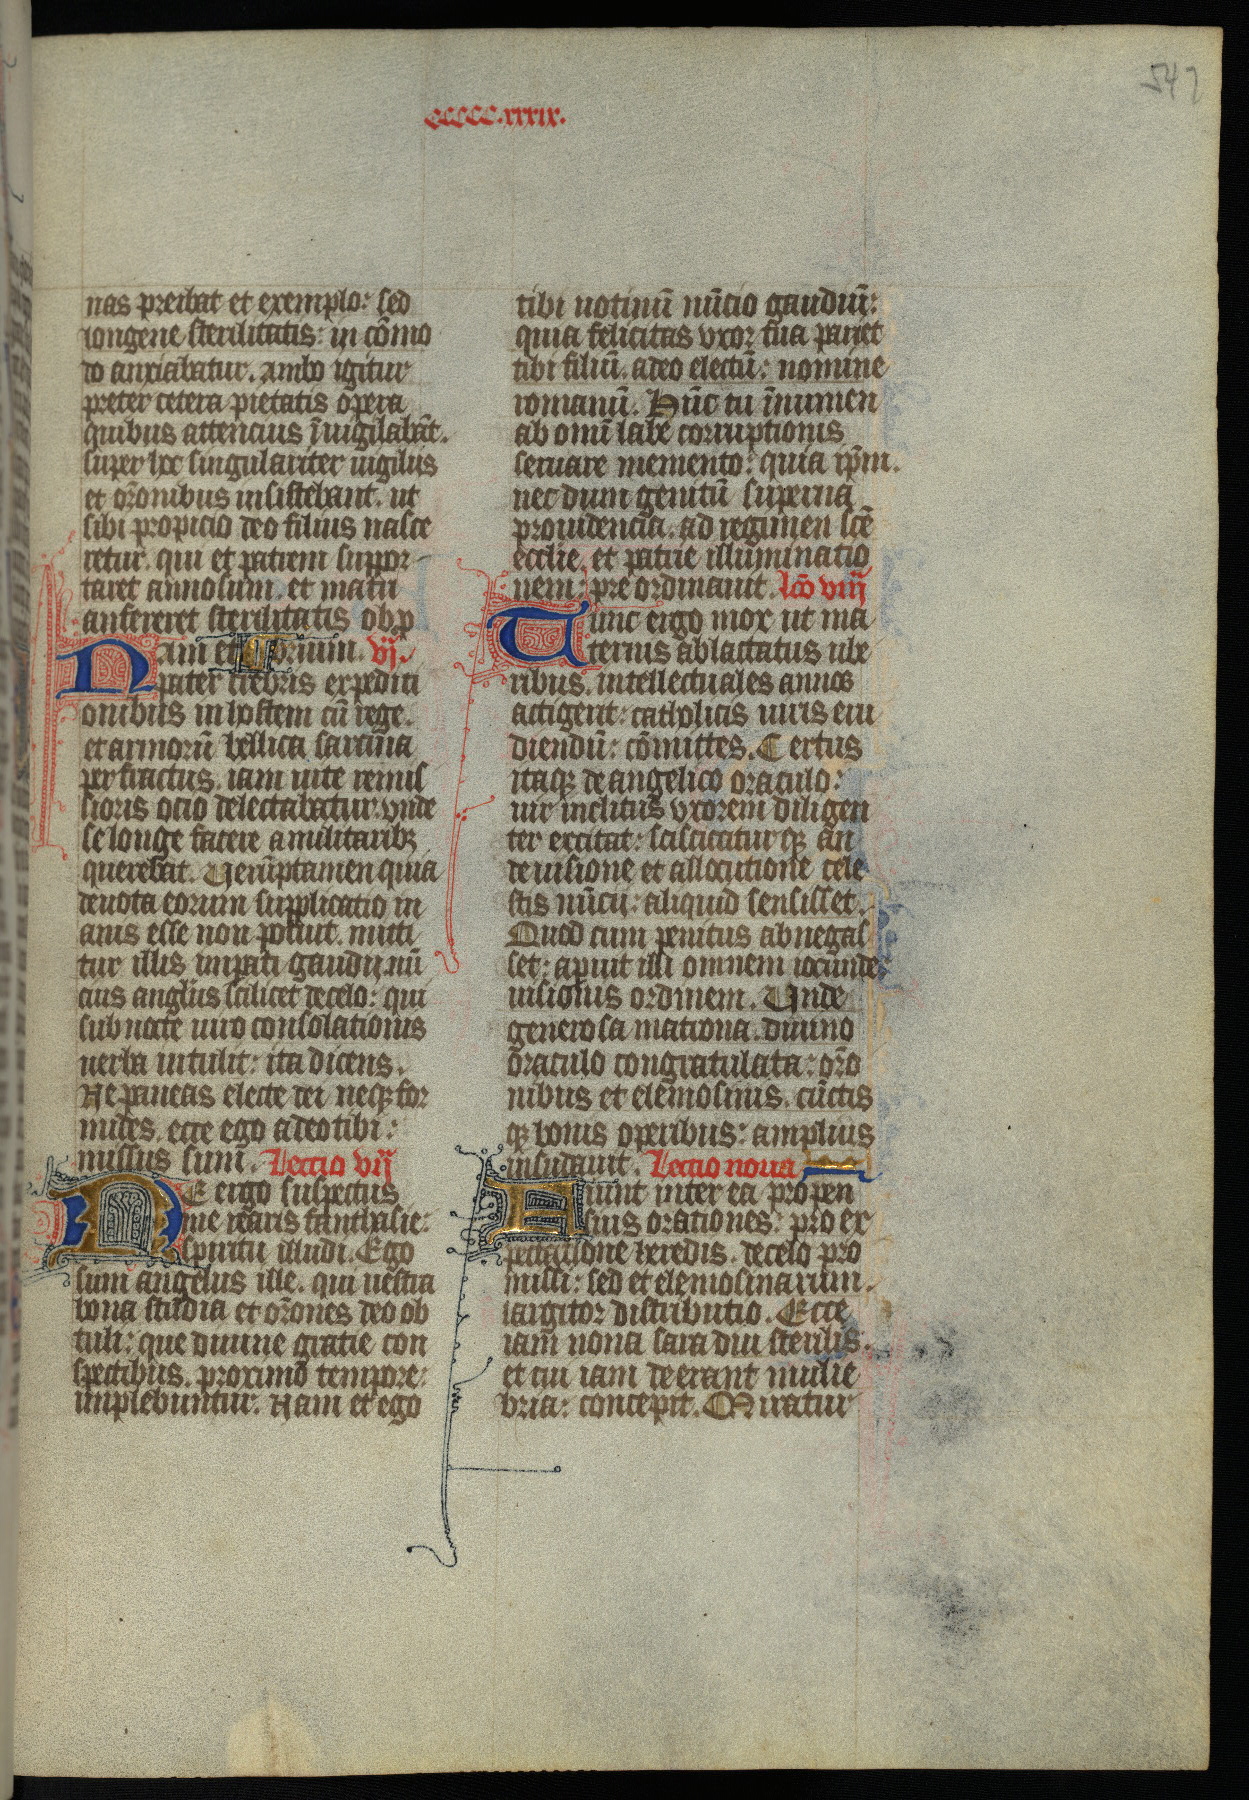 547
ccccc.xxxix.
nas preibat et exemplo: sed
longeue sterilitatis: in cōmo
do anxiabatur. Ambo igitur
preter cetera pietatis opera
quibus attencius īuigilabāt.
super hoc singulariter uigiliis
et orōnibus insistebant. ut
sibi propicio deo filius nasce
retur. qui et patrem suppor-
taret annosum. et matri
auferret sterilitatis obp
probrium. vj.
Nam et
pater crebris expediti
onibus in hostem cū rege.
et armorū bellica sarcina
perfractus. iam uite remis
sioris ocio delectabatur. vnde
se longe facere a militaribꝫ
querebat. Uerūptamen quia
deuota eorum supplicatio in
anis esse non potuit. mitti
tur illis insperati gaudii nū
cius anglus scilicet de celo: qui
sub nocte uiro consolationis
uerba intulit: ita dicens.
Ne paueas electe dei neqꝫ for
mides. ecce ego a deo tibi:
missus sum. Lectio vij
Ne ergo suspectus
me rearis fanthasie:
spiritu illudi. Ego
sum angelus ille. qui uestra
bona studia et orōnes deo ob
tuli: que diuine gratie con
spectibus. proximo tempore:
implebuntur. Nam et ego
tibi uotiuū nūcio gaudiū:
quia felicitas vxor tua pariet
tibi filiū. a deo electū: nomine
romanū. Hūc tu īnumen
ab omī labe corruptionis
seruare memento: quia xp̄m.
nec dum genitū superna
prouidencia. ad regimen scē
ecclie. et patrie illuminatio
nem: pre ordinauit. Lcō viij
Tunc ergo mox ut ma
ternis ablactatus ube
ribus. intellectuales annos
attigerit: catholicis uiris eru
diendū: cōmittes. Certus
itaqꝫ de angelico oraculo:
uir inclitus vxorem diligen
ter excitat: sciscitaturqꝫ an
de uisione et allocutione cele
stis nūcii: aliquid sensisset.
Quod cum penitus abnegas
set: aperuit illi omnem iocunde
uisionis ordinem. Unde
generosa matrona. diuino
oraculo congratulata: orō
nibus et elemosinis. cūctis
qꝫ bonis operibus: amplius
insudauit. Lectio nona
Fiunt inter ea propen
sius orationes: pro ex
pectatione heredis. de celo pro
missi: sed et elemosinarum.
largitor distributio. Ecce
iam noua sara diu sterilis.
et cui iam deerant mulie
bria: concepit. Miratur